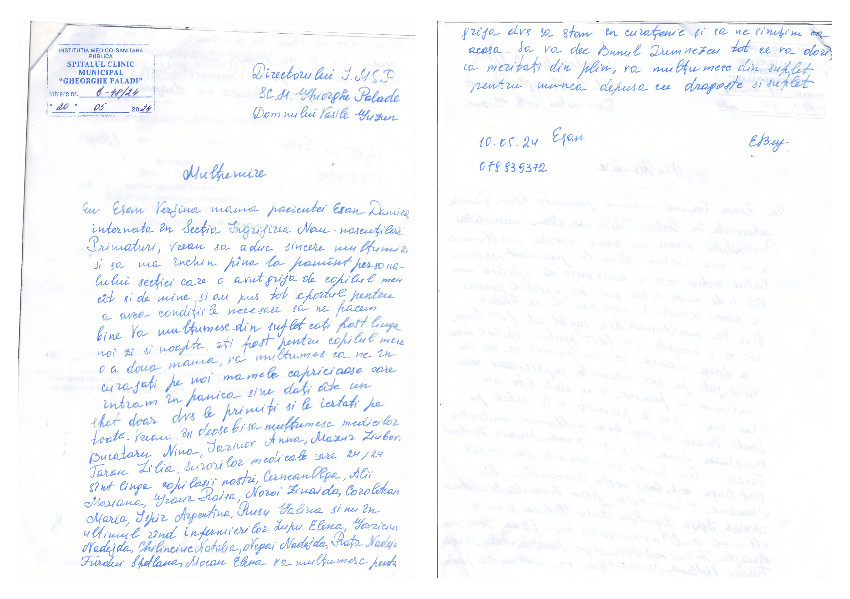 INSTITUȚIA MEDICO-SANITARĂ
PUBLICĂ
SPITALUL CLINIC
MUNICIPAL
"GHEORGHE PALADI"
Intrare nr. 6-40/24
"20" 05 2024
Directorului I.M.S.P
SC.M. Gheorghe Palade
Domnului Vasile
Mulțumire
Eu Eșan Verjina mama pacientei Eșan Damiea
internata în Secția Îngrijirea Nou-nascuților
Primaturi, vreau sa aduc sincere mulțumiri
si sa ma închin pîna la pamînt persona-
lului secției care o avut grija de copilul meu
cît si de mine, si au pus tot efortul pentru
a avea condițiile necesare să ne facem
bine Va mulțumesc din suflet cați fost linga
noi zi si noapte ați fost pentru copilul meu
o a doua mama, va mulțumes ca ne în
curajați pe noi mamele capricioase care
intram în panica si ne dați cîte un
sfat doar dvs le primiți si le iertați pe
toate. Vreau în deosebi sa mulțumesc medicilor
Bucataru Nina, Anna, Mazur Liubov
Taran Lilia, Surorilor medicale care 24/24
sînt linga copilașii nostri, Cernean Olga,
Mariana, Raisa, Noroi Zinaida,
Maria, Argentina, Rusu Galina si nu în
ultimul rînd infermierilor Lupu Elena,
Nadejda, Natalia, Negai Nadejda, Nadejda
Svetlana, Mocan Elena va mulțumesc pentru
grija dvs sa stam in curațenie si ca ne simțim ca
acasa. Sa va dee Bunul Dumnezeu tot ce va doriți
ca meritați din plin, va mulțumesc din suflet
pentru munca depusa cu dragoste si suflet
10.05.24 Eșan
079939372